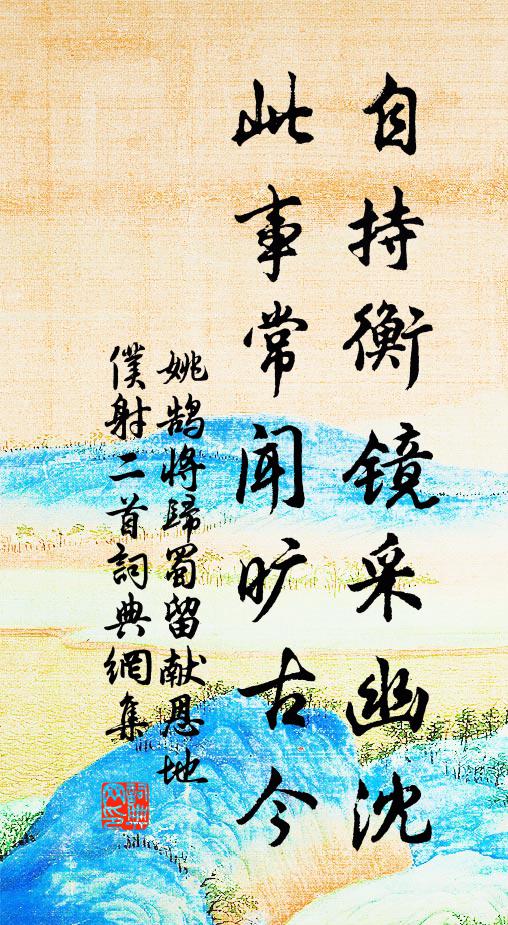 自持衡镜采幽沈
此事常闻旷古今
姚鹄将歸蜀留献恩地
僕射二首詞典網集